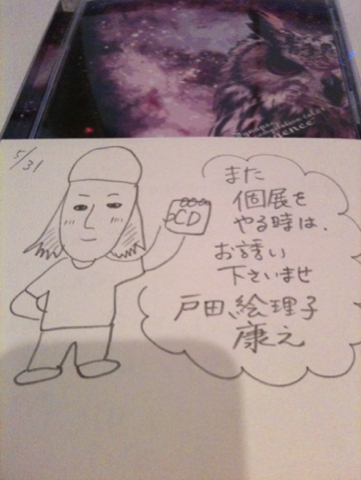 5/31
CD
また
個展を
やる時は、
お誘い
下さいませ
戸田絵理子
康之